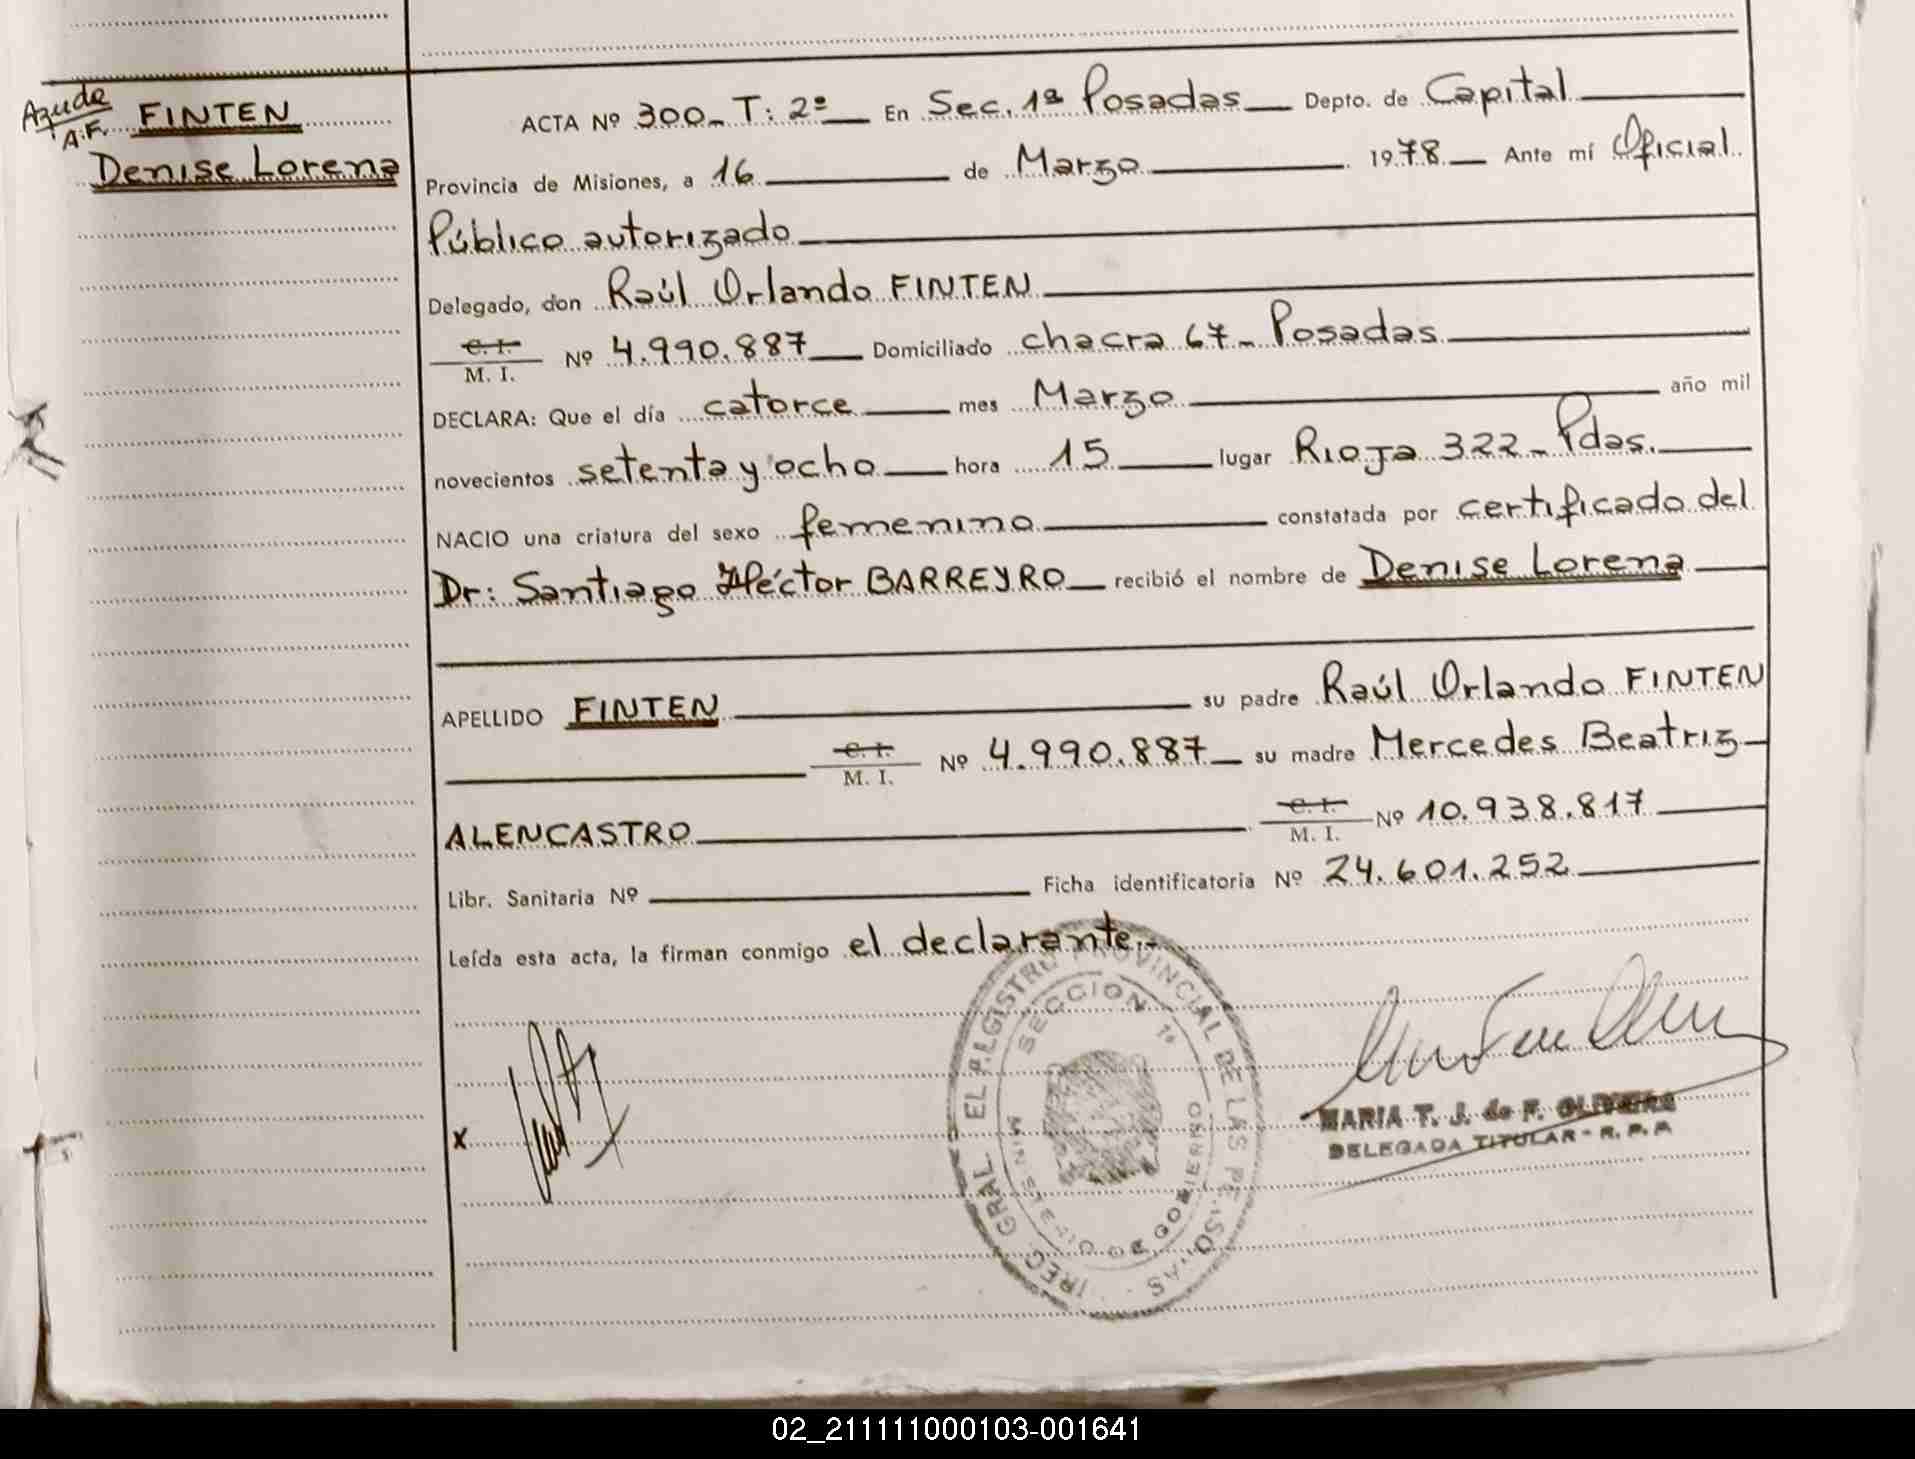 Ayuda
A.F.
FINTEN
Denise Lorena
ACTA Nº 300_ T: 2º En Sec. 1ª Posadas Depto. de Capital
Provincia de Misiones, a 16 de Marzo 1978 Ante mí Oficial
Público autorizado
Delegado, don Raúl Orlando FINTEN
C. I.
M. I. Nº 4.990.887 Domiciliado chacra 67_ Posadas
DECLARA: Que el día catorce mes Marzo año mil
novecientos setenta y ocho hora 15 lugar Rioja 322_ Pdas.
NACIO una criatura del sexo femenino constatada por certificado del
Dr: Santiago Héctor BARREYRO recibió el nombre de Denise Lorena
APELLIDO FINTEN su padre Raúl Orlando FINTEN
C. I.
M. I. Nº 4.990.887 su madre Mercedes Beatriz
ALENCASTRO C. I.
M. I. Nº 10.938.817
Libr. Sanitaria Nº Ficha identificatoria Nº 24.601.252
Leída esta acta, la firman conmigo el declarante.-
SECCION 1ª
PROVINCIAL DE LAS
DE GOBIERNO
x
MARIA T. J. de F. OLIVEIRA
DELEGADA TITULAR - R. P. P.
02_211111000103-001641